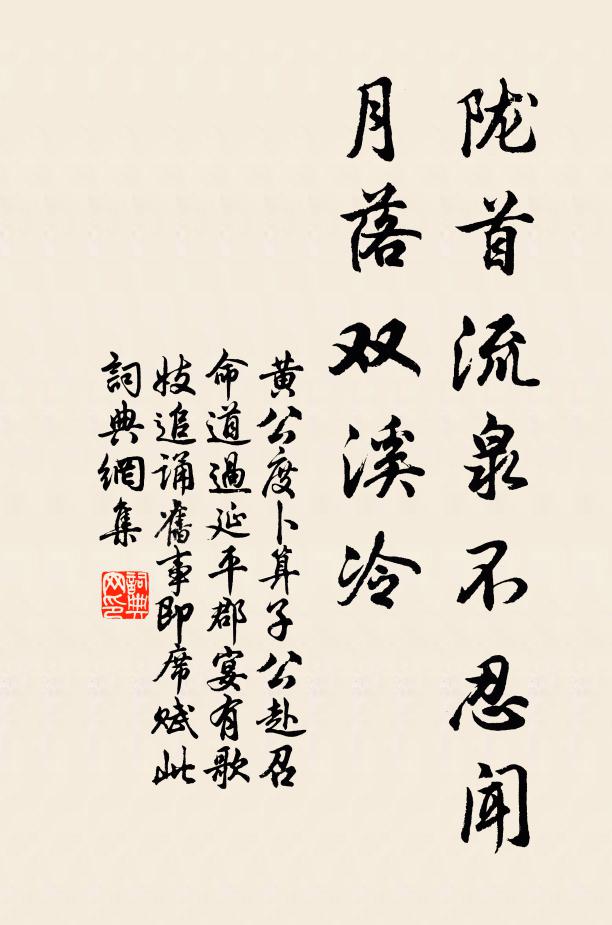 陇首流泉不忍闻
月落双溪冷
黄公度卜算子公赴召
命道過延平郡宴有歌
妓追诵舊事即席赋此
詞典網集
詞典
网印